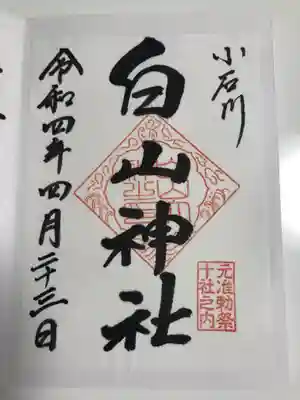 小石川
白山神社
元准勅祭
十社之内
令和四年四月二十三日